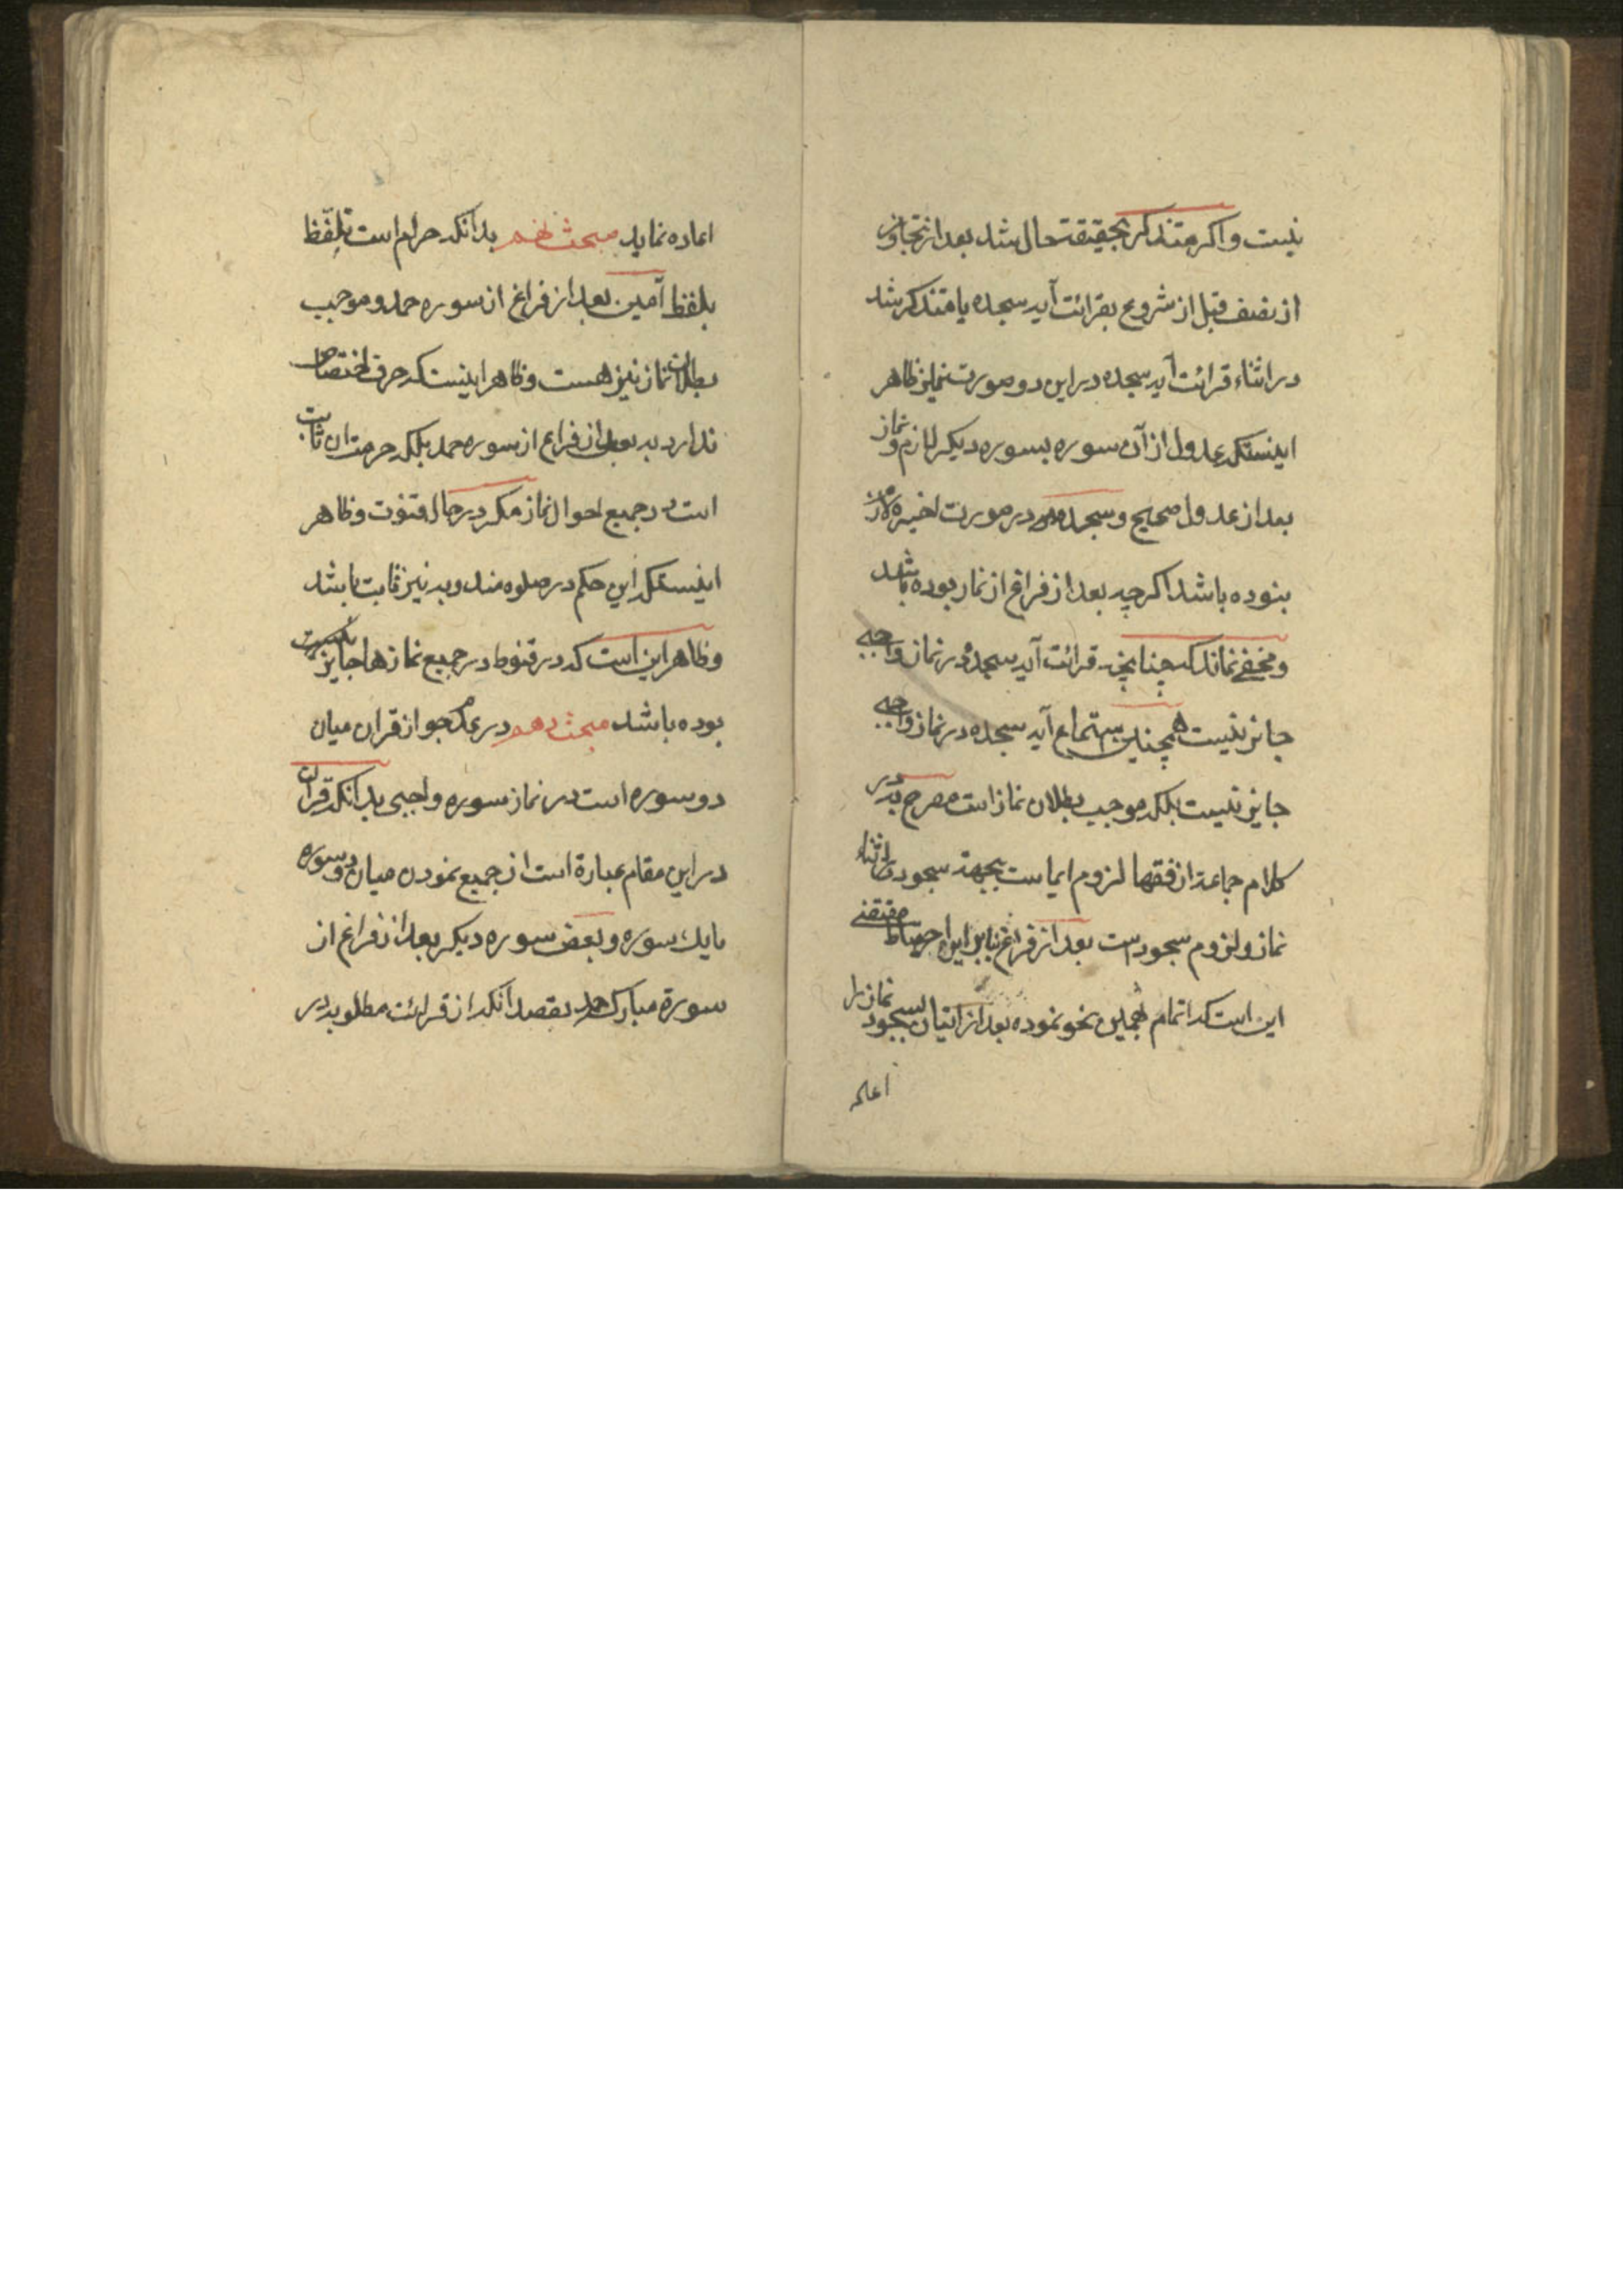 نیست و اکر متذکر بحقیقت حال شد بعد از تجاوز
از نصف قبل از شروع بقرائت آیه سجده یا متذکر شد
در اثناء قرائت آیه سجده در این دو صورت نیز ظاهر
اینستکه عدول از آن سوره بسوره دیکر لازم و نماز
بعد از عدول صحیح و سجده در صورت اخیره لازم
بنوده باشد اکرچه بعد از فراغ از نماز بوده باشد
و مخفی نماند که چنانچه قرائت آیه سجده در نماز واجبی
جایز نیست همچنین استماع آیه سجده در نماز واجبی
جایز نیست بلکه موجب بطلان نماز است مصرح به در
کلام جماعة از فقها لزوم ایما است بجهة سجود در اثناء
نماز و لزوم سجود است بعد از فراغ بنابراین احتیاط مقتضی
این است که اتمام بهمین نحو نموده بعد از اتیان بسجود نماز را
اعاده نماید مبحث نهم بدانکه حرام است تلفّظ
بلفظ آمین بعد از فراغ از سوره حمد و موجب
بطلان نماز نیز هست و ظاهر اینستکه حرمة اختصاص
ندارد به بعد از فراغ از سوره حمد بلکه حرمت ان ثابت
است در جمیع احوال نماز مکر در حال قنوت و ظاهر
اینستکه این حکم در صلوه مندوبه نیز ثابت باشد
و ظاهر این است که در قنوط در جمیع نمازها جایز
بوده باشد مبحث دهم در عدم جواز قران میان
دو سوره است در نماز سوره واجبی بدانکه قران
در این مقام عبارة است از جمیع نمودن میان دو سوره
یا یک سوره و بعض سوره دیکر بعد از فراغ از
سورة مبارکه حمد بقصد انکه از قرائت مطلوبه در